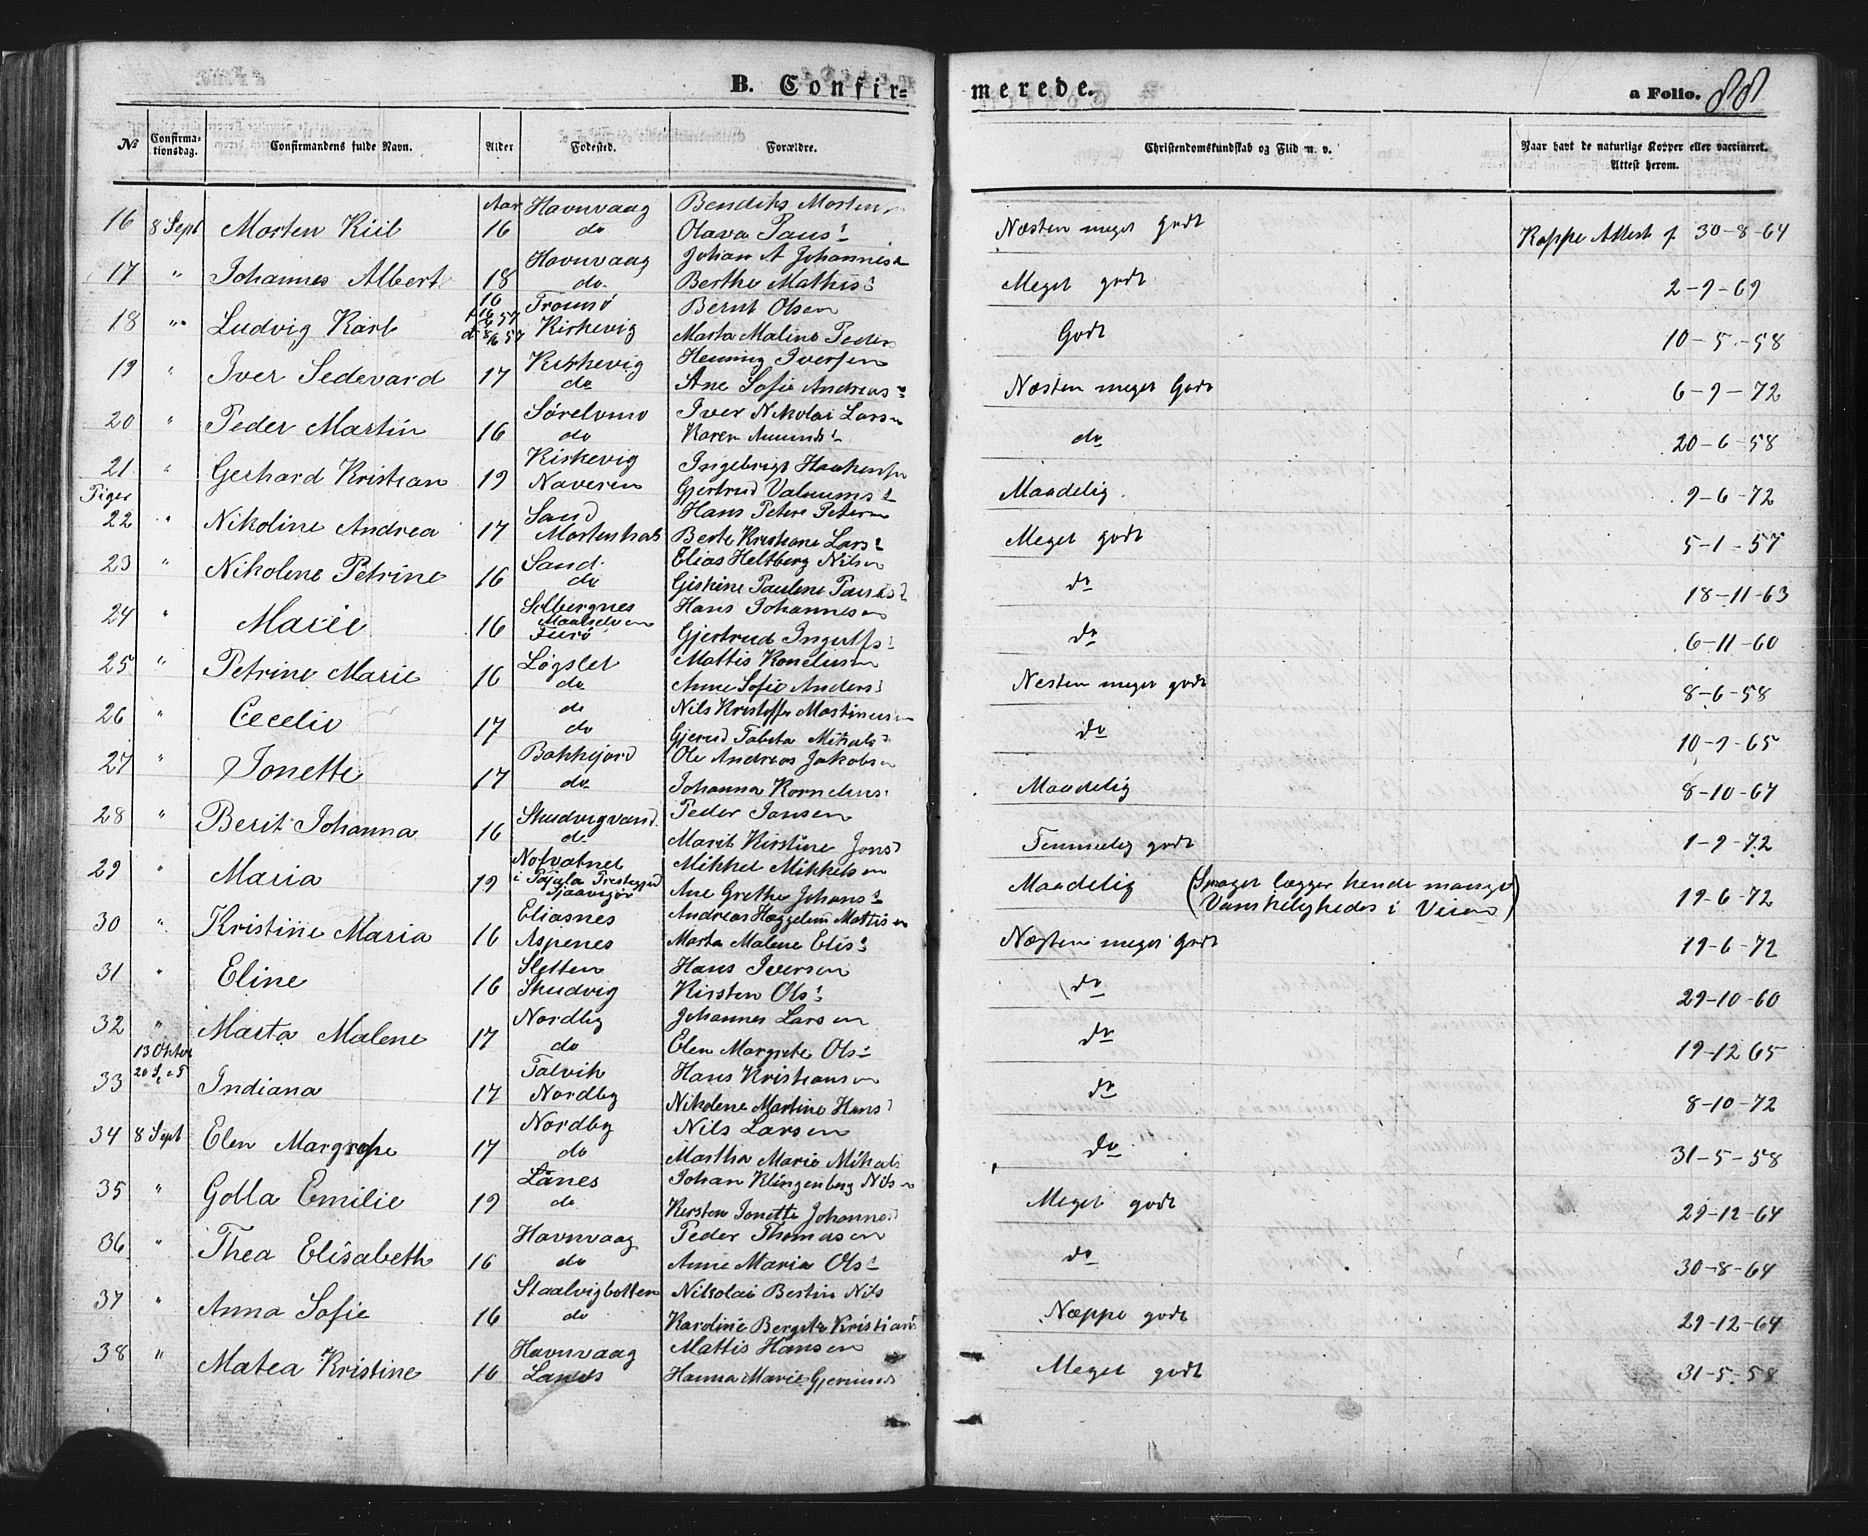 B. Confirmerede.
a Folio. 88
№ Confirmationsdag. Confirmandens fulde Navn. Alder Fødested. Forældre. Christendomskundskab og Flid m. v. Naar havt de naturlige Kopper eller vaccineret. Attest herom.
Aar Havnvaag Bendiks Morten
16 8 Sept Morten Kiil 16 do Olava Pauls: Næsten meget godt Koppe Attest f. 30-8-64
Havnvaag Johan A Johannes
17 " Johannes Albert 18 do Berthe Mathis: Meget godt 2-9-69
16 Tromsø Bernt Olsen
18 " Ludvig Karl Kirkevig Marta Malene Peder Godt 10-5-58
Kirkevig Henning Iversen
19 " Iver Sedevard 17 do Ane Sofie Andreas: Næsten meget Godt 6-9-72
Sørelvmo Iver Nikolai Larsen
20 " Peder Martin 16 do Karen Amunds: do 20-6-58
Kirkevig Ingebrigt Haakensen
21 " Gerhard Kristian 19 Naveren Gjertrud Valnums: Maadelig 9-6-72
Piger
Sand Hans Peter Petersen
22 " Nikoline Andrea 17 Mortenhals Berte Kristiane Lars: Meget godt 5-1-57
Sand Elias Heltberg Nilsen
23 " Nikolene Petrine 16 do Giskine Paulene Pauls: do 18-11-63
Selbergnes Hans Johannesen
Maalselven
24 " Marie 16 Furø Gjertrud Ingulfs: do 6-11-60
Løgslet Mattis Koneliusen
25 " Petrine Marie 16 do Anne Sofie Anders: Nesten meget godt 8-6-58
do Nils Kristoffer Martinusen
26 " Cecelie 17 do Gjerud Tabita Mikals: do 10-9-65
Bakkejord Ole Andreas Jakobsen
27 " Jonette 17 do Johanna Kornelius: Maadelig 8-10-67
Skudvigvand Peder Jansen
28 " Berit Johanna 16 do Marit Kirstine Jons: Temmelig godt 1-9-72
Mikkel Mikkelsen
29 " Maria 19 i Pajala Prestegjeld Ane Grethe Johans: Maadelig (Sproget lægger hende mange Vanskeligheder i Veien) 19-6-72
Eliasnes Andreas Mattisen
30 " Kristine Maria 16 Aspenes Marta Malene Elis: Næsten meget Godt 19-6-72
Sletten Hans Iversen
31 " Eline 16 Skudvig Kirsten Ols: do 29-10-60
Nordby Johannes Larsen
32 " Marta Malene 17 do Elen Margrete Ols: do 19-12 65
13 Oktbr Talvik Hans Kristiansen
33 Indiana 17 Nordby Nikolene Martine Hans: do 8-10-72
Nordby Nils Larsen
34 8 Sept Elen Margrethe 17 do Martha Marie Mikals do 31-5-58
Lånes Johan Klingenberg Nilsen
35 " Golla Emilie 19 do Kersten Jonette Johannes: Meget godt 29-12-64
Havnvaag Peder Thomasen
36 " Thea Elisabeth 16 do Anne Maria Ols: do 30-8-64
Staalvigbotten Nikolai Bertin Nils
37 " Anna Sofie 16 do Kardine Bergete Kristians Næppe godt 29-12-64
Havnvaag Mattis Hansen
38 " Matea Kristine 16 Lanes Hanna Marie Gjermunds Meget godt 31-5-58